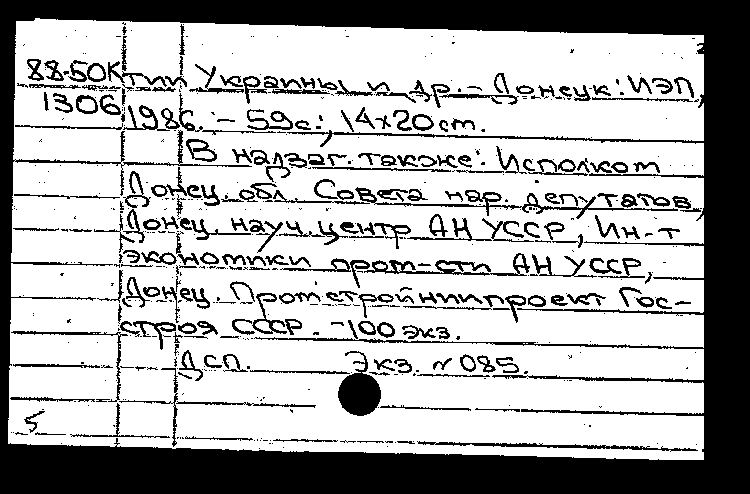 88-50К тии Украины и др. - Донецк: ИЭП,
1306 1986. - 59с.; 14х20 cm.
В надзаг. также: Исполком
Донец. обл. Совета нар. депутатов,
Донец. науч. центр АН УССР, Ин-т
экономики пром-сти АН УССР,
Донец. Промстройниипроект Гос-
строя СССР. - 100 экз.
ДСП. Экз. № 085.
5